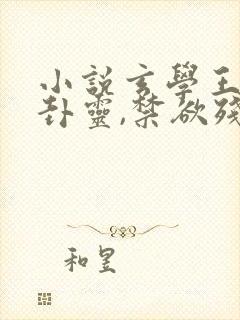 小說玄學王
卦靈,禁欲殘
和昱